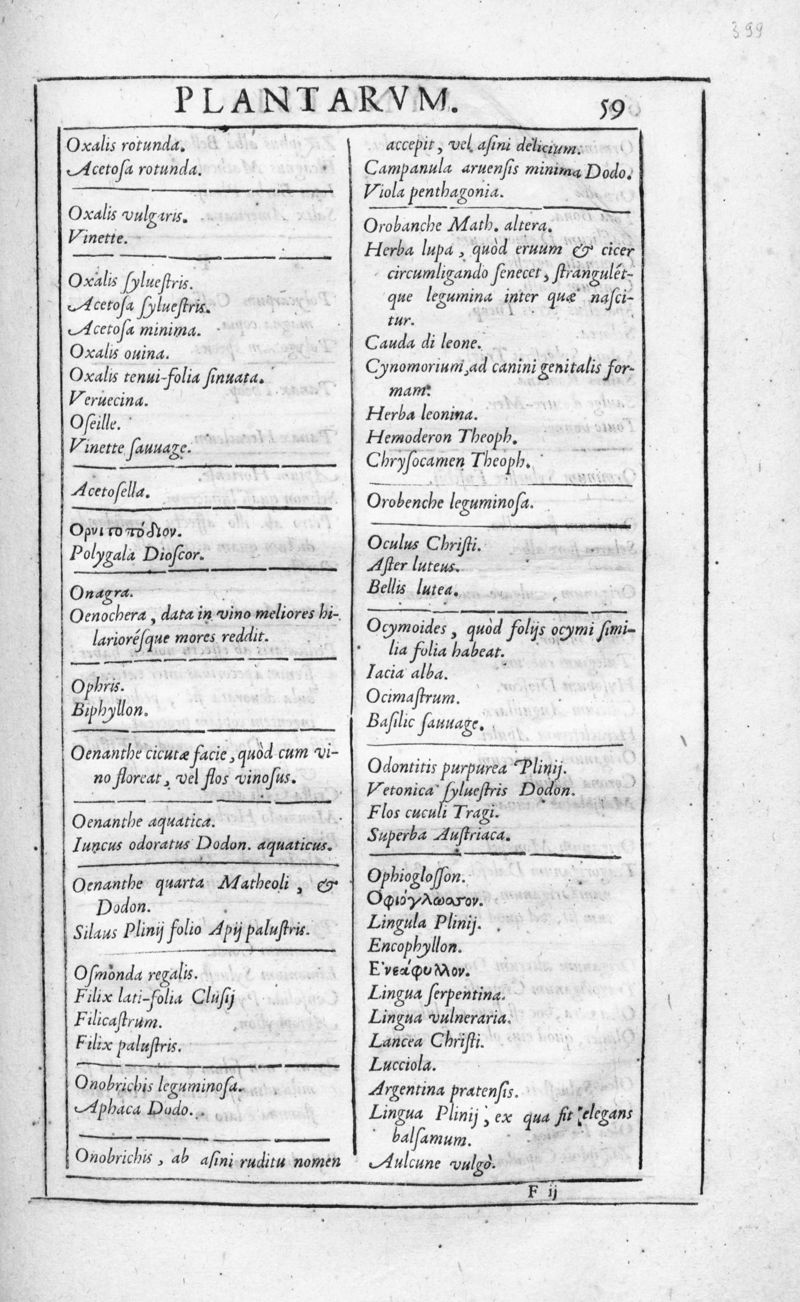 399
PLANTARVM.
59
Oxalis rotunda.
Acetoſa rotunda.
Oxalis vulgaris.
Vinette.
Oxalis ſylueſtris.
Acetoſa ſylueſtris.
Acetoſa minima.
Oxalis ouina.
Oxalis tenui-folia ſinuata.
Veruecina.
Oſeille.
Vinette ſauuage.
Acetoſella.
Ορνιτοπόδιον.
Polygala Dioſcor.
Onagra.
Oenochera, data in vino meliores hi-
larioréſque mores reddit.
Ophris.
Biphyllon.
Oenanthe cicutæ facie, quòd cum vi-
no floreat, vel flos vinoſus.
Oenanthe aquatica.
Iuncus odoratus Dodon. aquaticus.
Oenanthe quarta Matheoli, &
Dodon.
Silaus Plinij folio Apij paluſtris.
Oſmonda regalis.
Filix lati-folia Cluſij
Filicaſtrum.
Filix paluſtris.
Onobrichis leguminoſa.
Aphaca Dodo.
Onobrichis, ab aſini ruditu nomen
accepit, vel aſini delicium.
Campanula aruenſis minima Dodo.
Viola penthagonia.
Orobanche Math. altera.
Herba lupa, quòd eruum & cicer
circumligando ſenecet, ſtrangulét-
que legumina inter quæ naſci-
tur.
Cauda di leone.
Cynomorium, ad canini genitalis for-
mam.
Herba leonina.
Hemoderon Theoph.
Chryſocamen Theoph.
Orobenche leguminoſa.
Oculus Chriſti.
Aſter luteus.
Bellis lutea.
Ocymoides, quòd folijs ocymi ſimi-
lia folia habeat.
Iacia alba.
Ocimaſtrum.
Baſilic ſauuage.
Odontitis purpurea Plinij.
Vetonica ſylueſtris Dodon.
Flos cuculi Tragi.
Superba Auſtriaca.
Ophiogloſſon.
Οφιόγλωσσον.
Lingula Plinij.
Encophyllon.
Ενεάφυλλον.
Lingua ſerpentina.
Lingua vulneraria.
Lancea Chriſti.
Lucciola.
Argentina pratenſis.
Lingua Plinij, ex qua fit elegans
balſamum.
Aulcune vulgò.
F ij